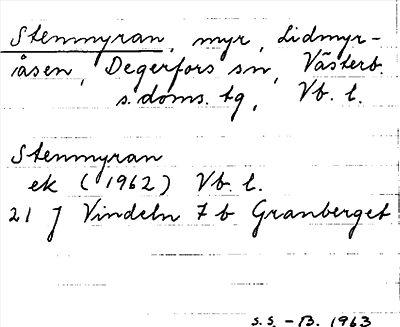 Stenmyran, myr, Lidmyr-
åsen, Degerfors sn, Västerb.
s. doms. tg, Vb. l.
Stenmyran
ek (1962) Vb. l.
21 J Vindeln 7 b Granberget
s.s. - B. 1963